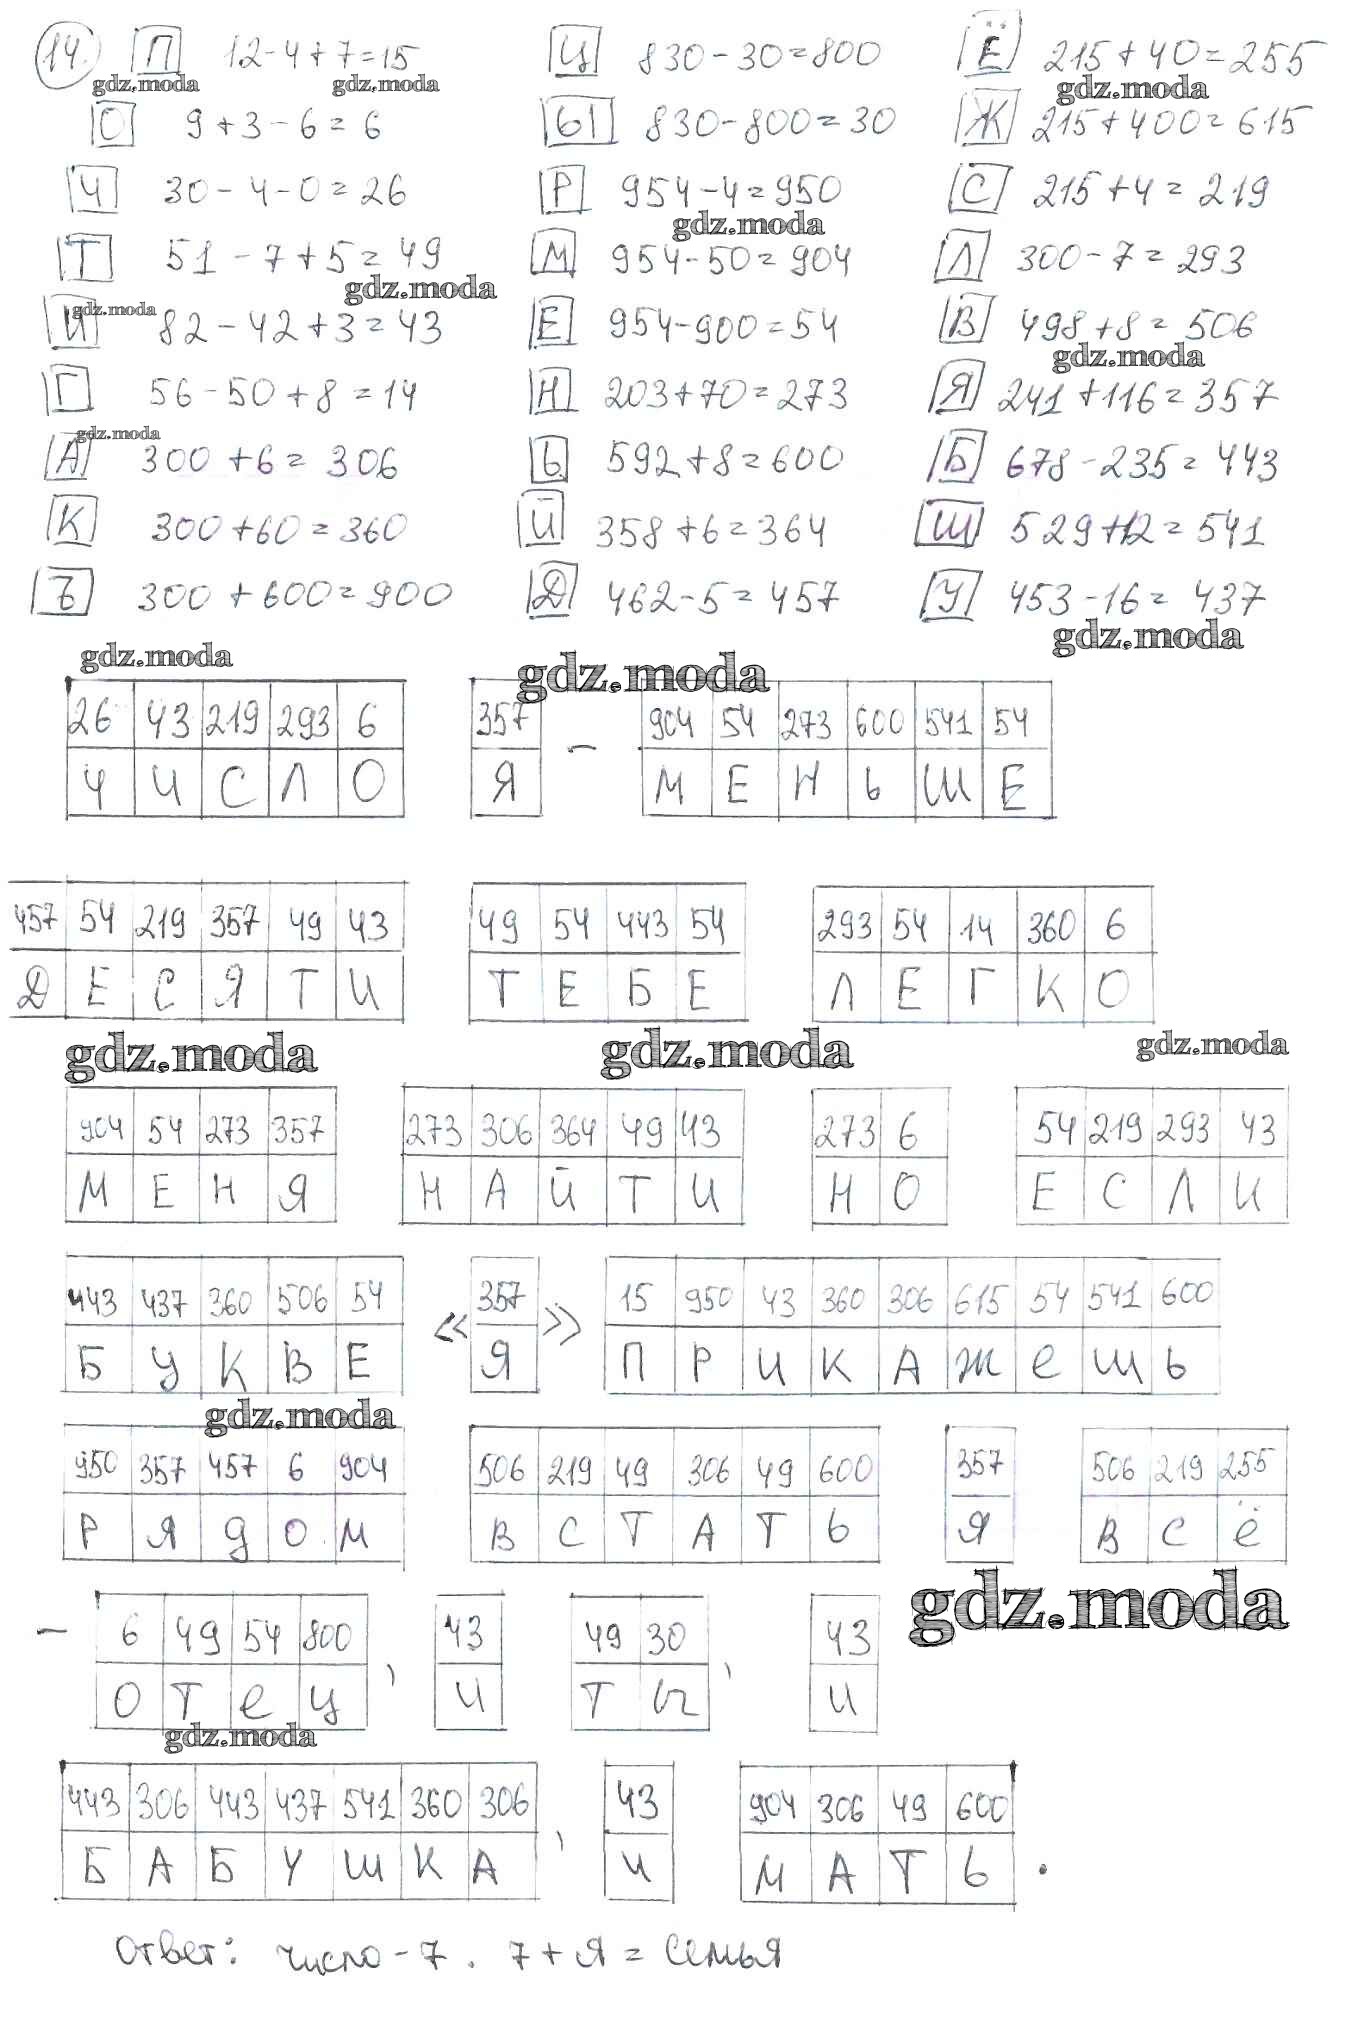 14. П 12-4+7=15 Ц 830-30=800 Ё 215+40=255
gdz.moda gdz.moda gdz.moda
О 9+3-6=6 Ы 830-800=30 Ж 215+400=615
Ч 30-4-0=26 Р 954-4=950 С 215+4=219
gdz.moda
Т 51-7+5=49 М 954-50=904 Л 300-7=293
gdz.moda
И 82-42+3=43 Е 954-900=54 В 498+8=506
gdz.moda gdz.moda
Г 56-50+8=14 Н 203+70=273 Я 241+116=357
gdz.moda
А 300+6=306 Ь 592+8=600 Б 678-235=443
К 300+60=360 Й 358+6=364 Ш 529+12=541
Ъ 300+600=900 Д 462-5=457 У 453-16=437
gdz.moda gdz.moda gdz.moda
26 43 219 293 6 357 – 904 54 273 600 541 54
Ч И С Л О Я М Е Н Ь Ш Е
457 54 219 357 49 43 49 54 443 54 293 54 14 360 6
Д Е С Я Т И Т Е Б Е Л Е Г К О
gdz.moda gdz.moda gdz.moda
904 54 273 357 273 306 364 49 43 273 6 54 219 293 43
М Е Н Я Н А Й Т И Н О Е С Л И
443 437 360 506 54 « 357 » 15 950 43 360 306 615 54 541 600
Б У К В Е Я П Р И К А Ж е Ш Ь
gdz.moda
950 357 457 6 904 506 219 49 306 49 600 357 506 219 255
Р Я д О М В С Т А Т Ь Я В С ё
gdz.moda
– 6 49 54 800 , 43 49 30 , 43
О Т е Ц И Т Ы И
gdz.moda
443 306 443 437 541 360 306 , 43 904 306 49 600 .
Б А Б У Ш К А И М А Т Ь
Ответ: число - 7. 7 + Я = Семья